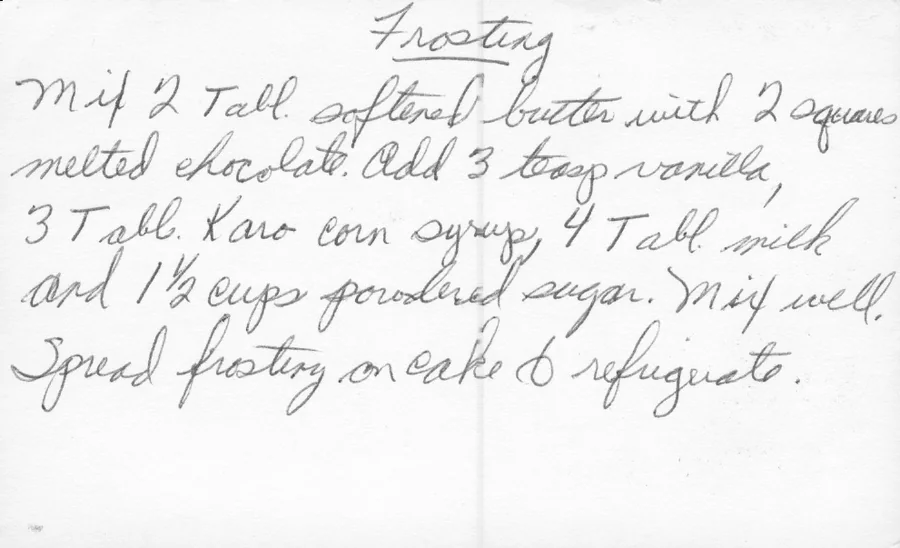 Frosting
Mix 2 Tabl. softened butter with 2 squares
melted chocolate. Add 3 teasp vanilla,
3 Tabl. Karo corn syrup, 4 Tabl. milk
and 1 1/2 cups powdered sugar. Mix well.
Spread frosting on cake & refrigerate.